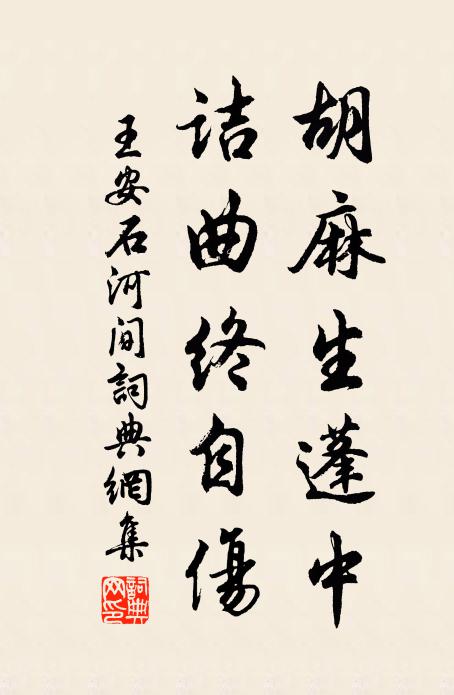 胡麻生蓬中
詰曲終自傷
王安石河间詞典網集
詞典網印